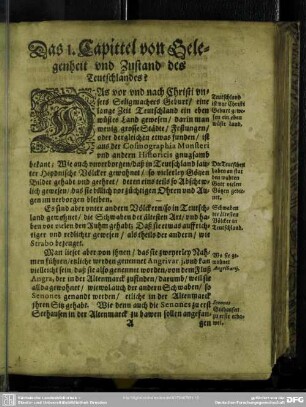 Das 1. Capittel von Gele-
genheit vnd Zustand des
Teutschlandes:
DAs vor vnd nach Christi vn-
sers Seligmachers Geburt / eine
lange Zeit Teutschland ein eben
wüstes Land gewesen / darin man
wenig grosse Städte / Festungen /
oder dergleichen etwas funden / ist
aus der Cosmographia Munsteri
vnd andern Historicis gnugsam
bekant; Wie auch vnverborgen / daß in Teutschland lau-
ter Heydnische Völcker gewohnet / so vielerley Götzen
Bilder gehabt vnd geehret /
lich gewesen / das sie billich vor züchtigen Ohren vnd Au-
gen zu verborgen bleiben.
Es sind aber vnter andern Völckern / so in Teutsch-
land gewohnet / die Schwaben der ältesten Art / vnd ha-
ben vor vielen den Ruhm gehabt: Daß sie etwas auffrich-
tiger vnd redlicher gewesen / als theils der andern / wie
Strabo bezeuget.
Man lieset aber von ihnen / das sie zweyerley Nah-
men führen / etliche werden genennet Angrivar
vielleicht sein / daß sie also genennet worden / von dem Fluß
Angra, der in der Altenmarck
alda gewohnet / wiewol auch der andern Schwaben / so
Senones genandt werden / etliche in der Altenmarck
ihren Sitz gehabt. Wie denn auch die Senones zu erst
Seehausen in der Altenmarck zu bawen sollen angefan-
A gen
Teutschland
ist vor Christi
Geburt gewe-
sen ein eben
wüste land.
Die Teutschen
haben an stat
des wahren
Gott vielen
Götzen ge-
dienet.
Schwaben
die ältesten
Völcker in
Teutschland.
Wo sie ge-
wohnet
Angrivarij.
Senones
Seehausen
zu erst erba-
wet.